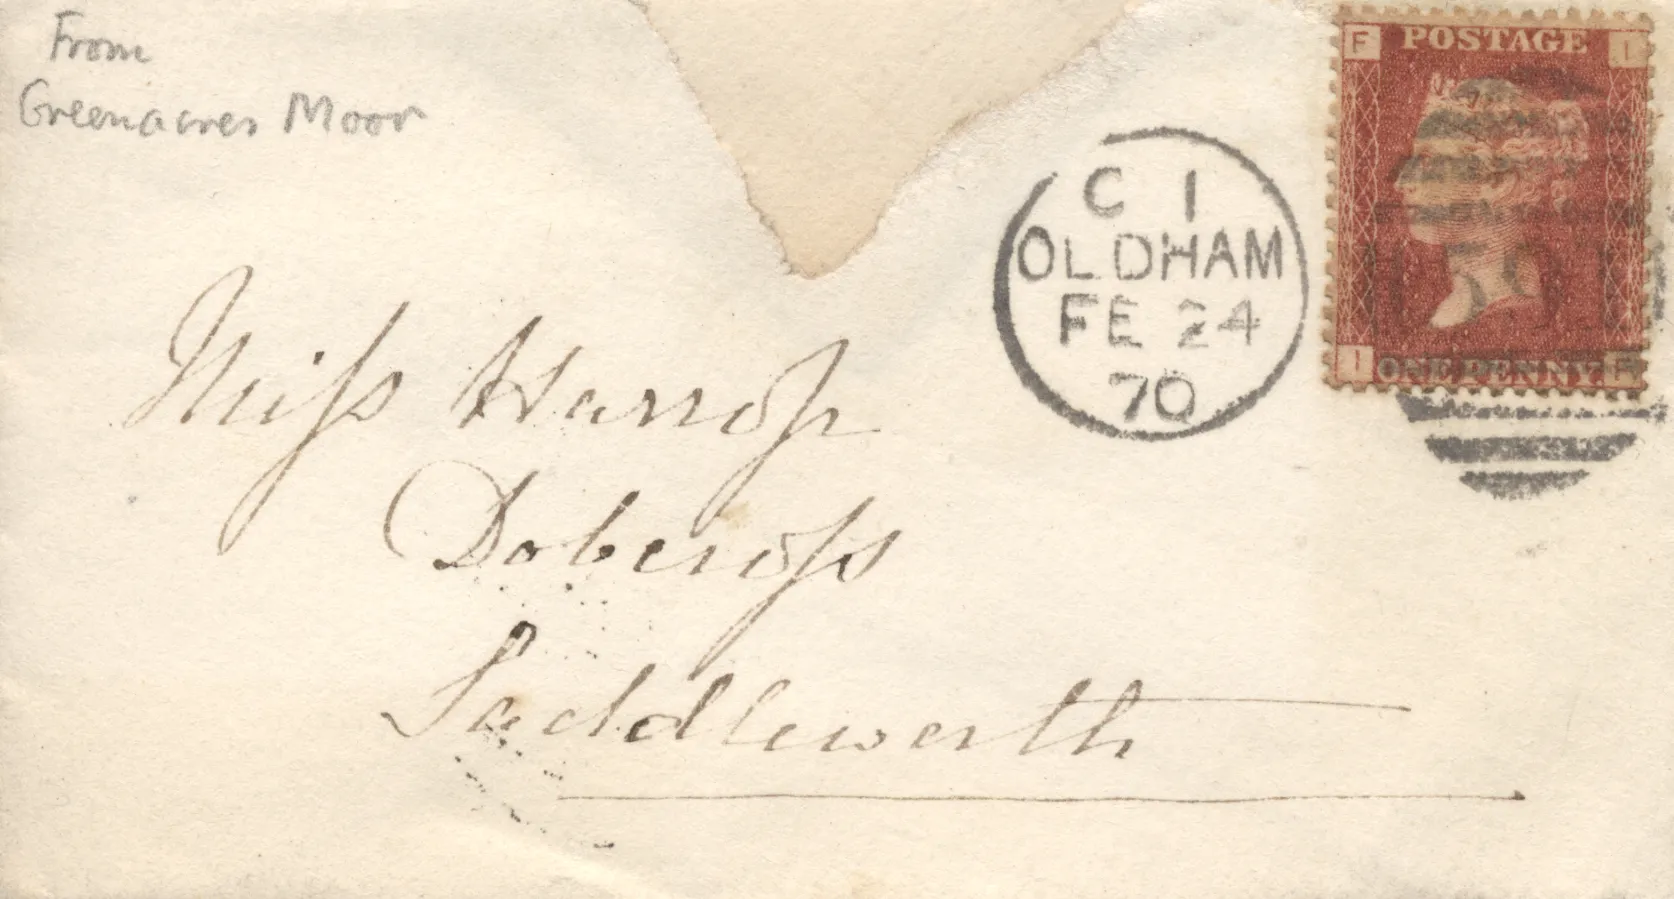 From
Greenacres Moor
F POSTAGE I
C 1
OLDHAM
FE 24
70
I ONE PENNY F
Miss Harrop
Dobcross
Saddleworth